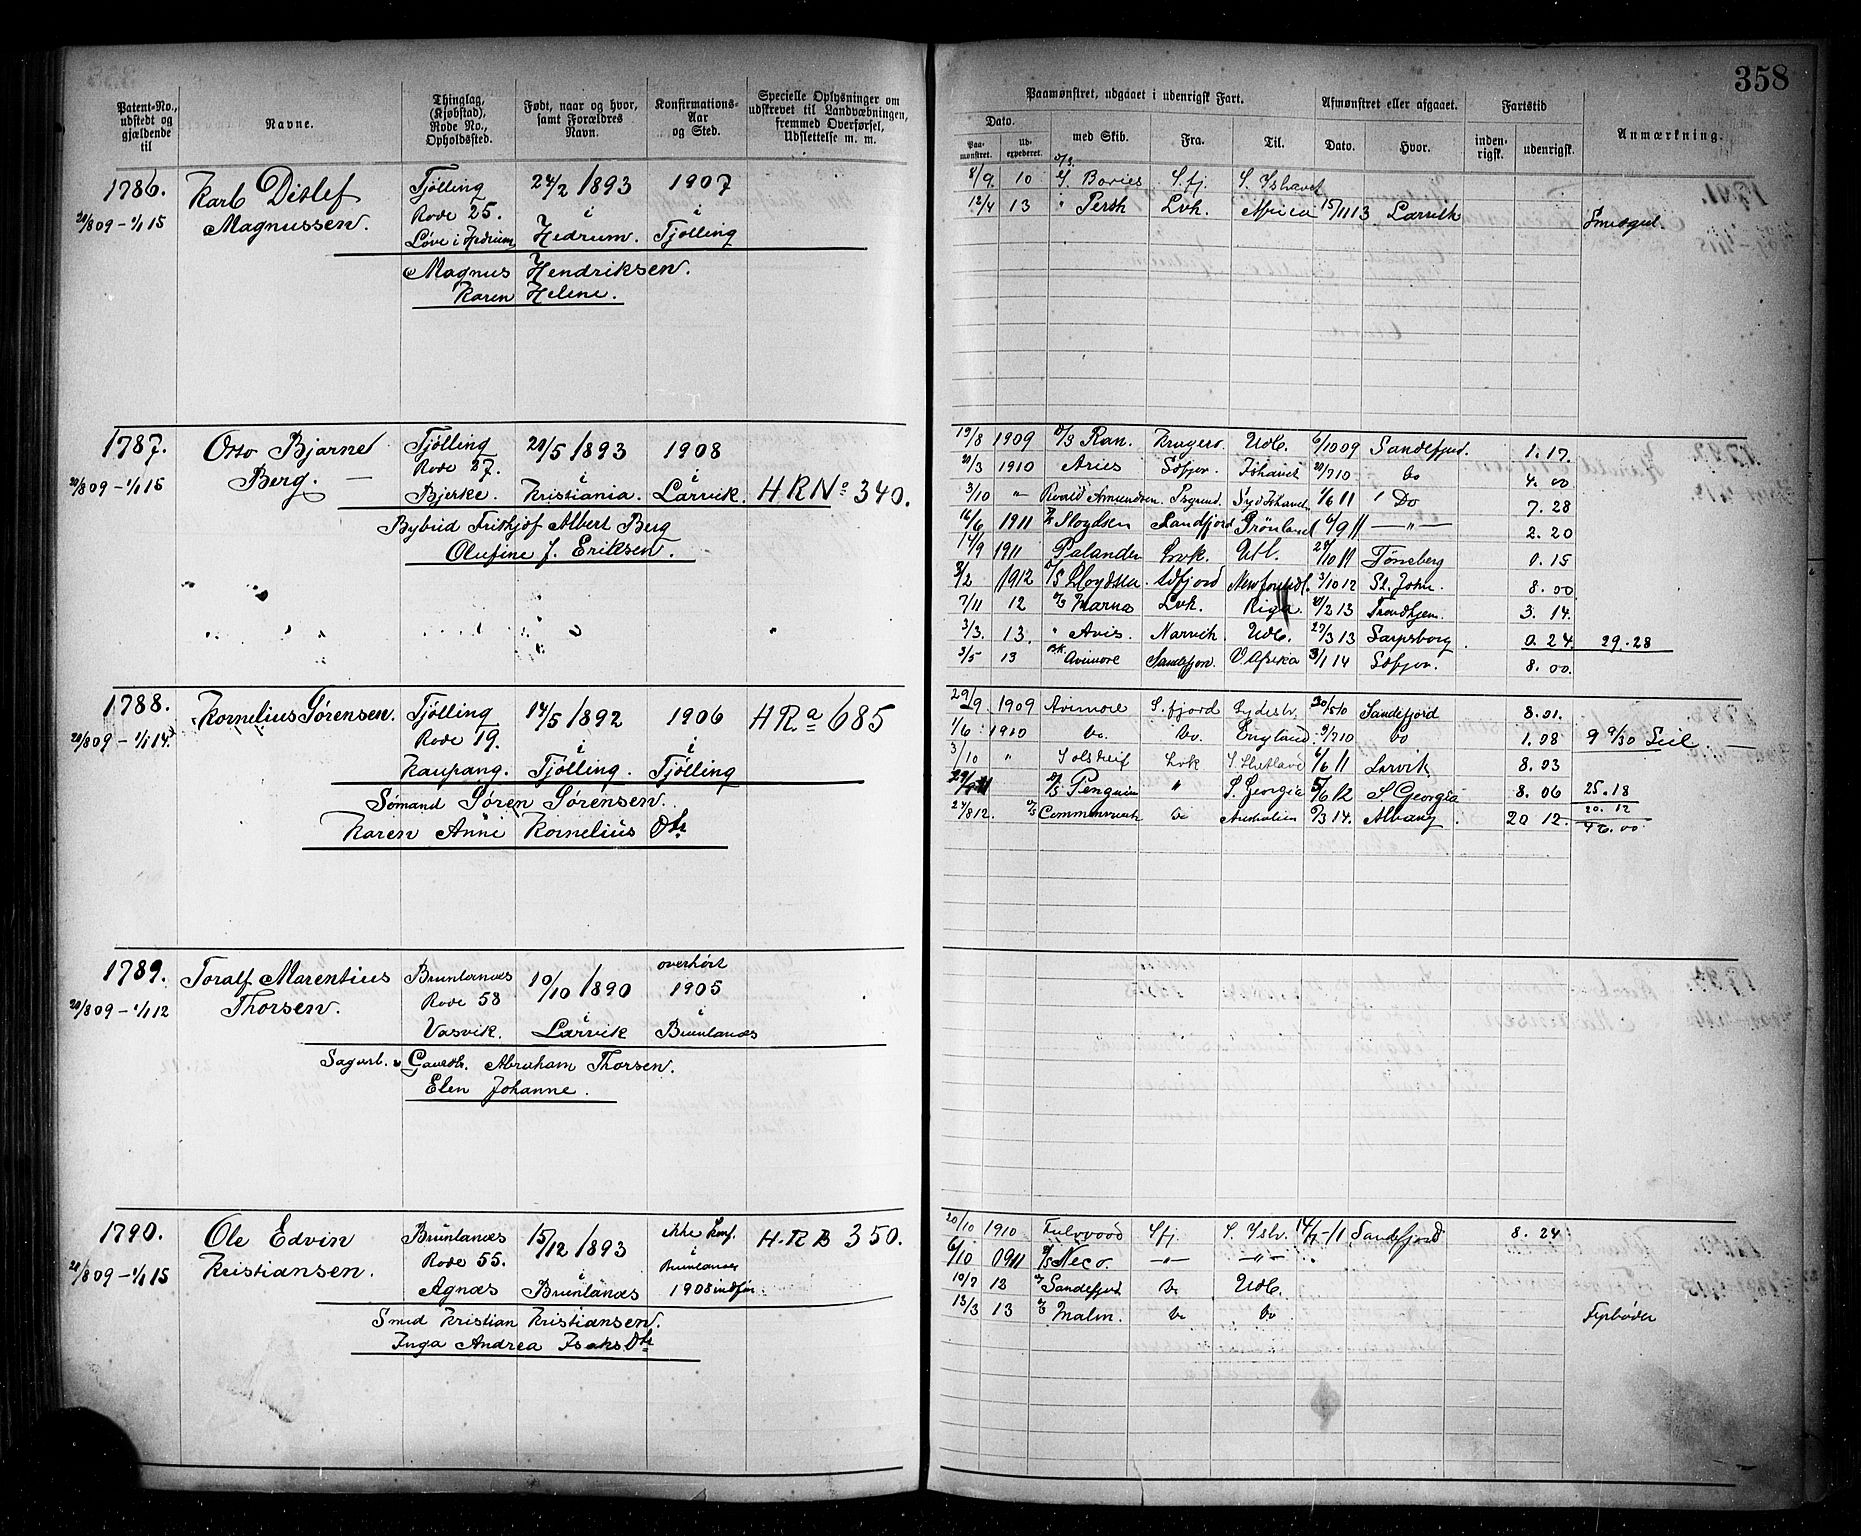 358
Patent-No., udstedt og gjældende til
Navne.
Thinglag, (Kjøbstad), Rode No., Opholdssted.
Født, naar og hvor, samt Forældres Navn.
Konfirmations-Aar og Sted.
Specielle Oplysninger om udskrevet til Landværnet, fremmed Overførsel, Udslettelse m. m.
Paamønstret, udgaaet i udenrigsk Fart.
Afmønstret eller afgaaet.
Fartstid
Anmærkning.
Dato.
med Skib.
Fra.
Til.
Dato.
Hvor.
inden-rigsk.
udenrigsk.
Paa-mønstret.
Ud-expederet.
1786. Karl Ditlef Tjølling 24/2 1893 1907
20/8 09 – 1/1 15 Magnussen. Rode 25. i i
Løve i Hedrum Hedrum. Tjølling
Magnus Hendriksen.
Karen Helene.
8/9. 10 Bories S.fj. S. Ishavet
12/4 13 " Persk Lvk. Africa 15/11 13 Larvik
1787. Otto Bjarne Tjølling 20/5 1893 1908
20/8 09 – 1/1 15 Berg. — Rode 37. i i
Bjerke. Kristiania. Larvik. H.R No 340.
Bybud Frithjof Albert Berg
Olufine J. Eriksen.
19/8 1909 Ran. Kragerø. Udl. 6/10 09 Sandefjord. 1. 17.
20/3 1910 Aries Sdfjor. Ishavet 20/7 10 Do 4. 00
3/10 " Roald Amundsen. Prsgrund. Syd Ishavet 1/6 11 Do 7. 28
16/6 1911 Sloydsen Sandfjord Grønland 6/9 11 — " — 2. 20
14/9 1911 Palander Lvk. Utl. 29/10 11 Tønsberg 0. 15
2/2 1912 Sdfjord Newfoundl. 3/10 12 St. John. 8. 00
7/11 12 Marna Lvk. Riga 20/2 13 Trondhjem 3. 14.
3/3. 13. " Avis. Narvik Udl. 27/3 13 Sarpsborg 0. 24. 29. 28
3/5 13 Avimore Sandefjor. V. Afrika 3/1 14 Sdfjor. 8. 00.
1788. Kornelius Sørensen. Tjølling 14/5 1892 1906 H R a 685
20/8 09 – 1/1 14. Rode 19. i i
Kaupang. Tjølling. Tjølling
Sømand Søren Sørensen.
Karen Anne Kornelius Dtr
29/9 1909 Avimore S. fjord Sydishv. 30/5 10 Sandefjord 8. 01.
1/6 1910 Do. Do. England 9/7 10 Do 1. 08 9 9/30 Seil —
3/10 " Solstreif Lvk S. Shetland 6/6 11 Larvik 8. 03
Penguin " S. Georgia 5/6 12 S. Georgia 8. 06 25. 18
20. 12
24/8 12. Do Australien 9/3 14. Albany 20 12. 46. 00
1789. Toralf Marentius Brunlanæs 10/10 1890 overhørt
20/8 09 – 1/1 12 Thorsen. Rode 58 i 1905
i
Vasvik. Larvik Brunlanæs
Sagarb. Abraham Thorsen.
Elen Johanne.
1790. Ole Edvin Brunlanæs 15/12 1893 ikke konf. H. R B 350.
20/8 09 – 1/1 15 Kristiansen. Rode 55. i Brunlanæs
Agnæs Brunlanæs 1908 indfør.
Smed Kristian Kristiansen.
Inga Andrea Isaks Dtr
20/10 1910 Fulwood Sfj S. Ishv. 14/7 – 11 Sandefjord 8. 24
6/10 0911 Neco. — " — — " —
10/7 12 Sandefjord Do Udl.
13/3 13 Malm. Do Do